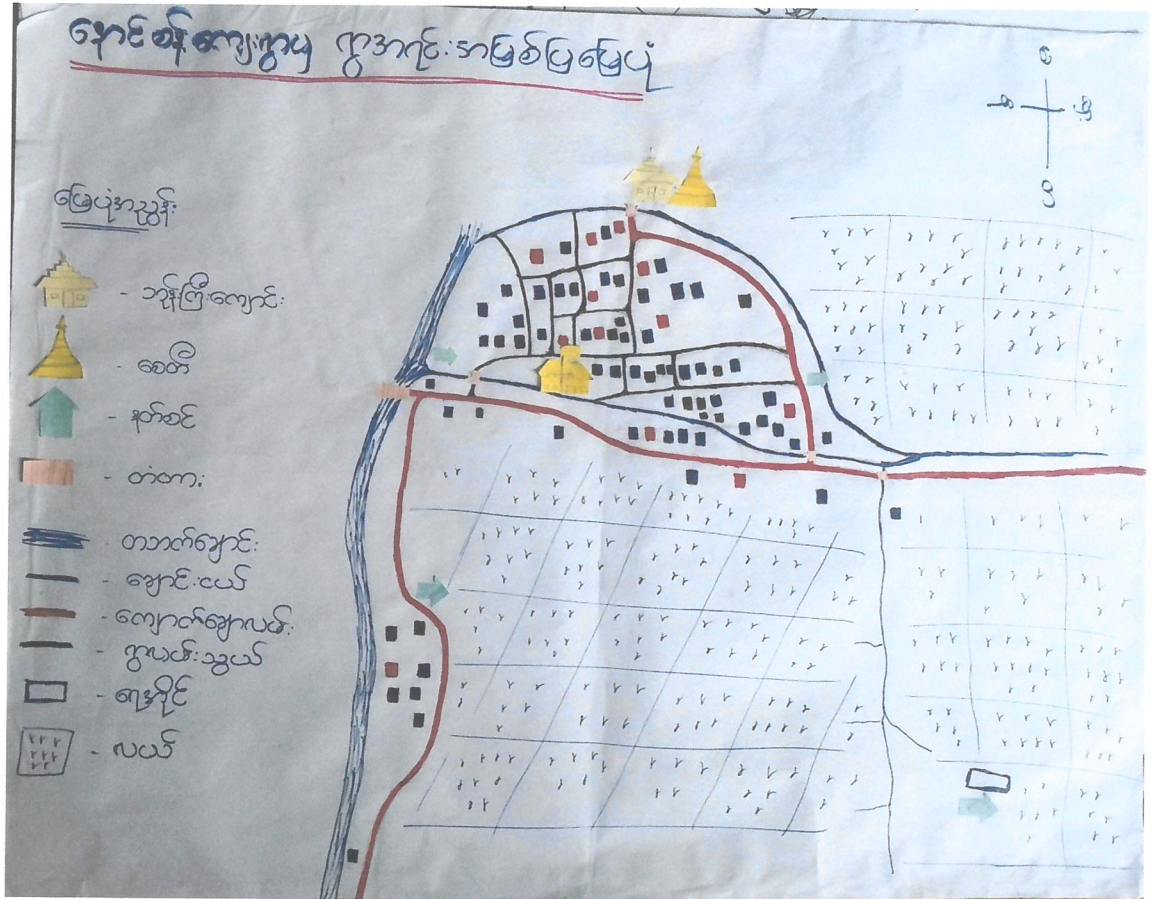 နောင်စန်ကျေးရွာမှ ရွာအရင်းအမြစ်ပြမြေပုံ
မြေပုံအညွှန်း
- ဘုန်းကြီးကျောင်း
- စေတီ
- နတ်စင်
- တံတား
- တဘက်ချောင်း
- ချောင်းငယ်
- ကျောက်ချောလမ်း
- ရွာလမ်းသွယ်
- ရေအိုင်
- လယ်